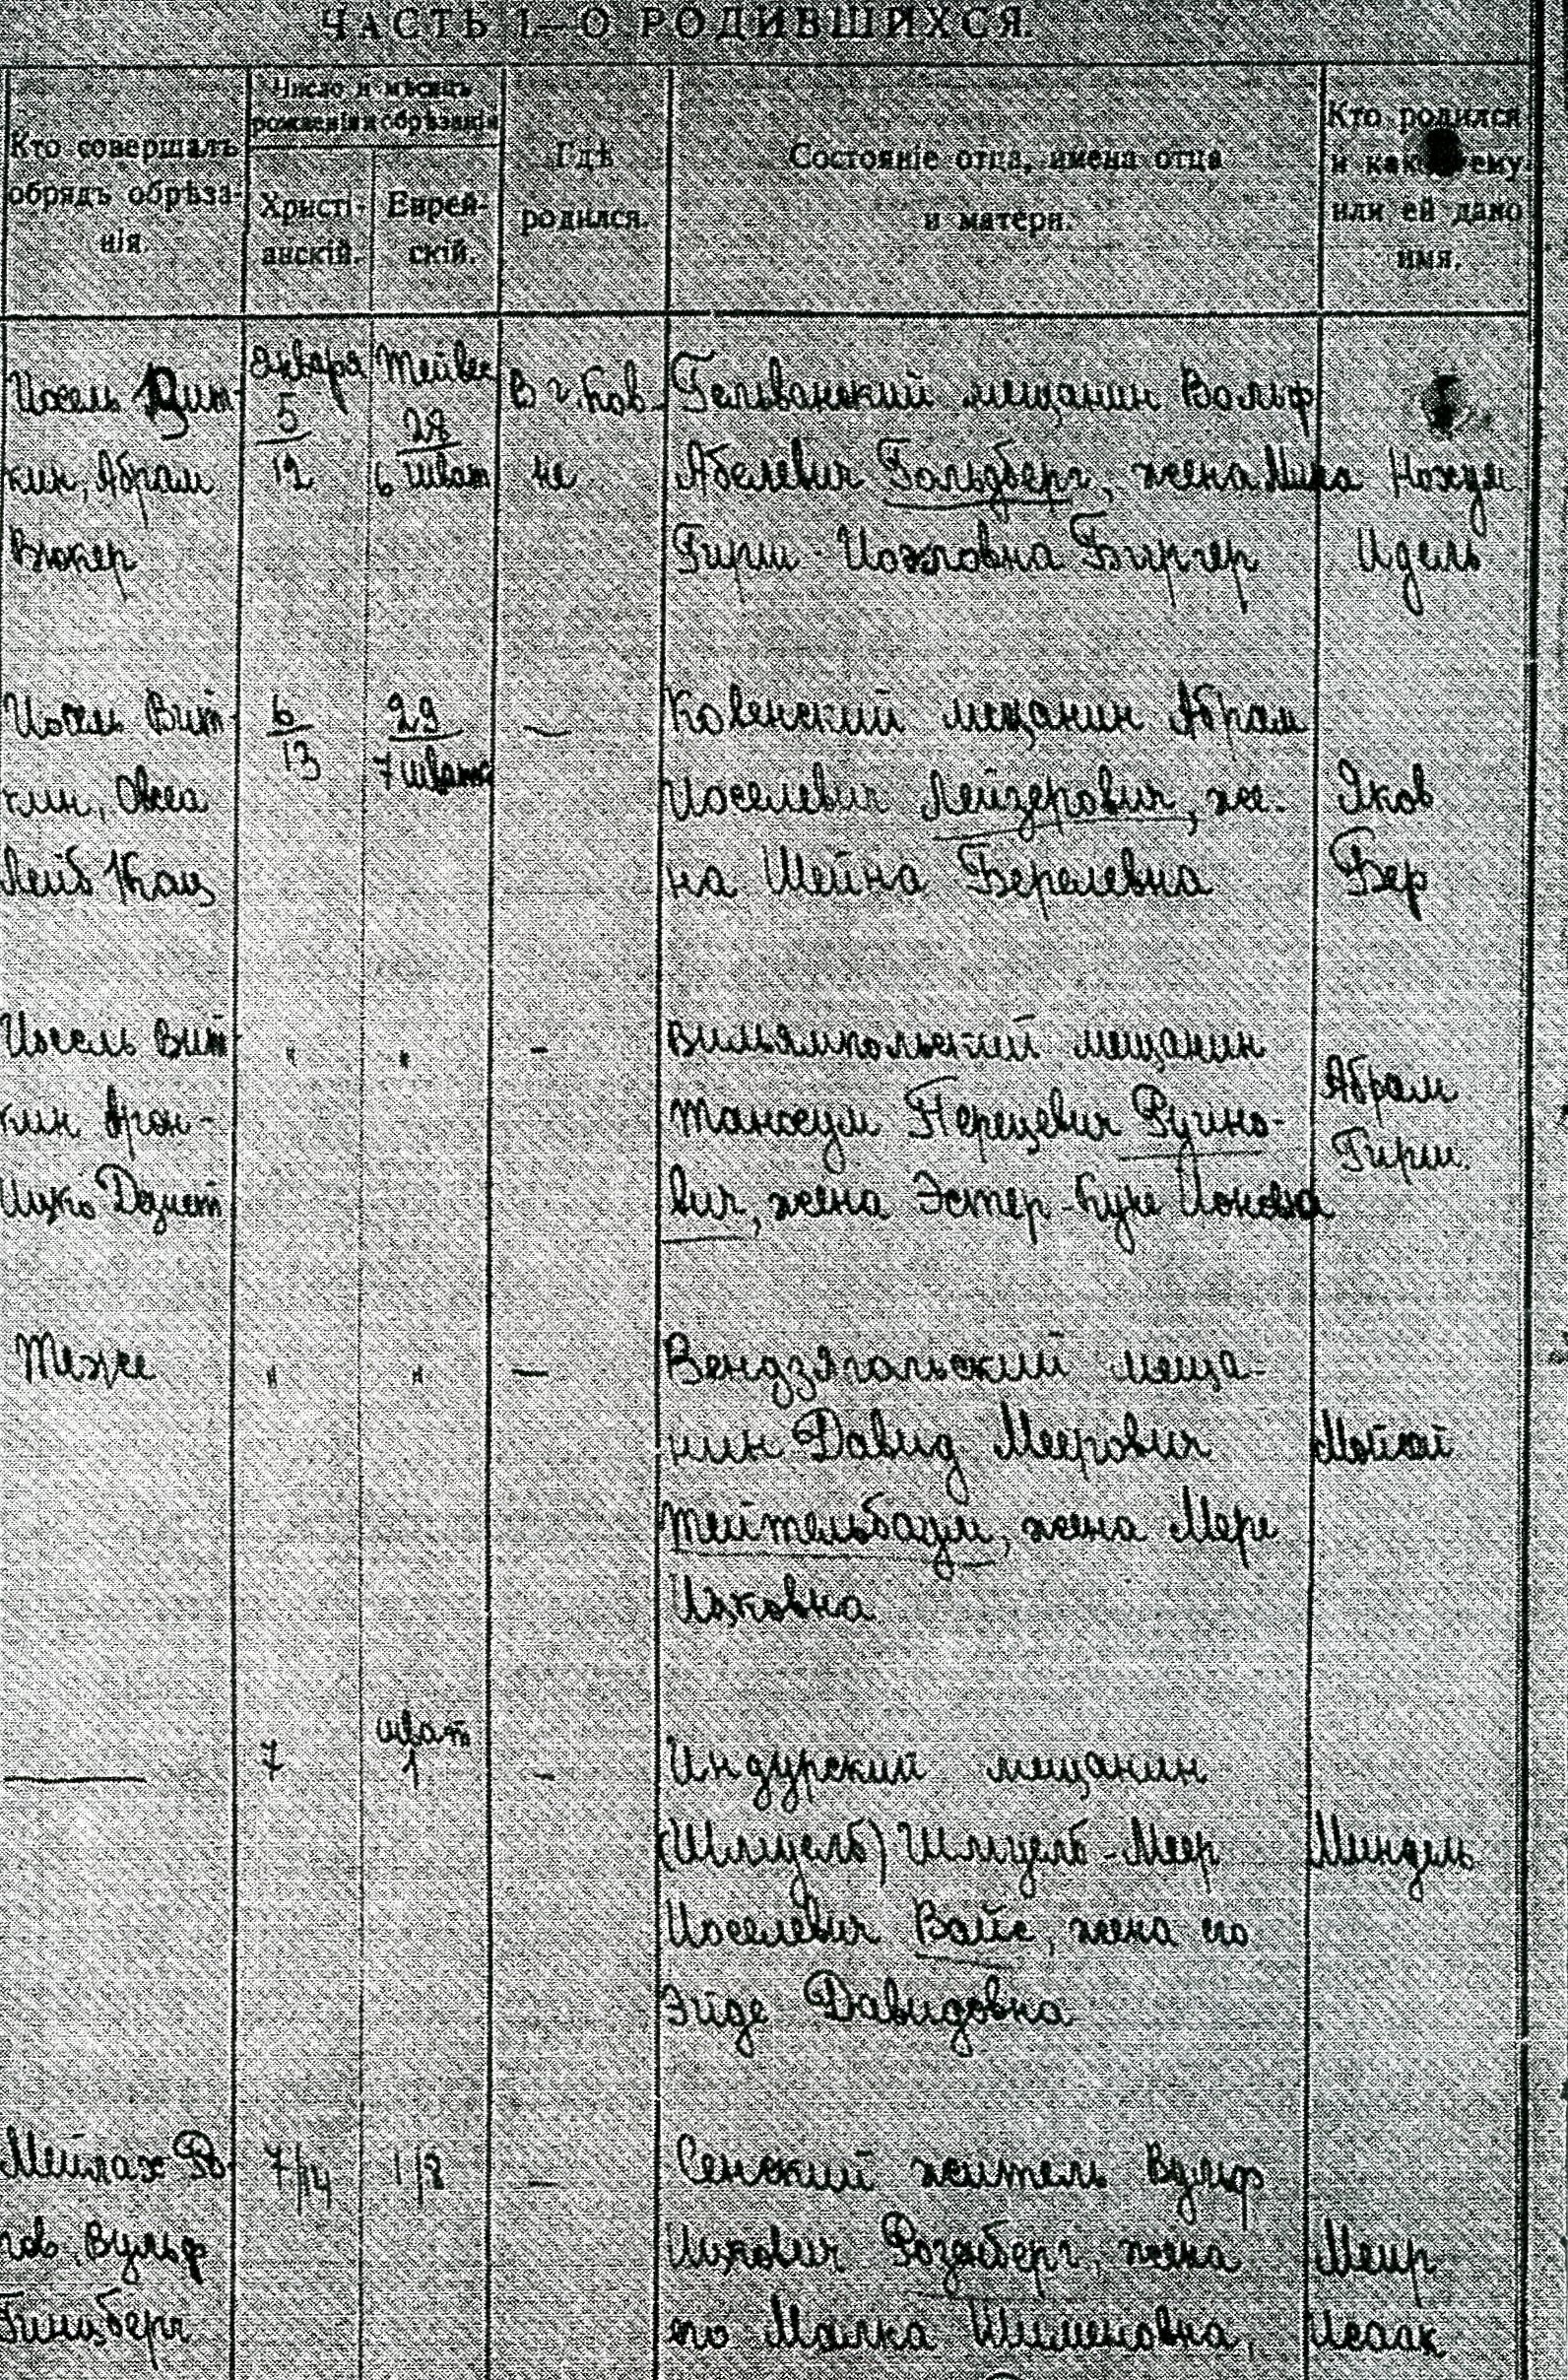 ЧАСТЬ I.—О РОДИВШИХСЯ.
Кто совершалъ
обрядъ обрѣза-
нія.
Число и мѣсяцъ
рожденія и обрѣзанія
Христі-
анскій.
Еврей-
скій.
Гдѣ
родился.
Состояніе отца, имена отца
и матери.
Кто родился
и ему
или ей дано
имя.
Иосель
кин, Абрам
Января
5
12
Тейвес
28
6 шват
В г. Ков-
не
Гельванский мещанин Вольф
Абелевич Гольдберг, жена
Гирш - Биргер
Нохум
Идель
Иосель Вит-
кин,
Лейб Кац
6
13
29
7 шват
—
Ковенский мещанин Абрам
Иоселевич Лейзерович, же-
на Шейна Берелевна
Яков
Бер
Иосель Вит-
кин Арон-
Ицко
"
"
-
Вильямпольский мещанин
Танхум Перецевич
вич, жена Эстер-
Абрам
Гирш.
Теже
"
"
—
Вендзягальский меща-
нин Давид Меерович
Тейтельбаум, жена Мере
Ицковна
—
7
шват
1
-
Индурский мещанин
(Шмуель) Шмуель-Меер
Иоселевич Вайс, жена его
Эйде Давидовна
Миндель
Мейлах
Вульф
Гинцберг
7/14
1/8
—
Сенский житель Вульф
Ицкович жена
его Малка
Меир
Исаак